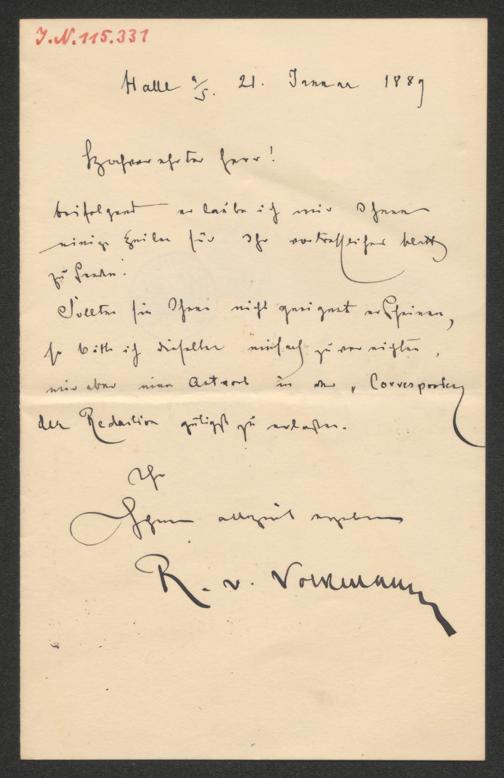 J.N. 115.331
Halle a/S. 21. Januar 1889
Hochverehrter Herr!
beifolgend erlaube ich mir Ihnen
einige Zeilen für Ihr vortreffliches Blatt
zu senden.
Sollten sie Ihnen nicht geeignet erscheinen,
so bitte ich dieselben einfach zu vernichten,
mir aber eine Antwort in der "Correspondenz
der Redaction gütigst zu erlassen.
Ihr
Ihnen allezeit ergebener
R. v. Volkmann